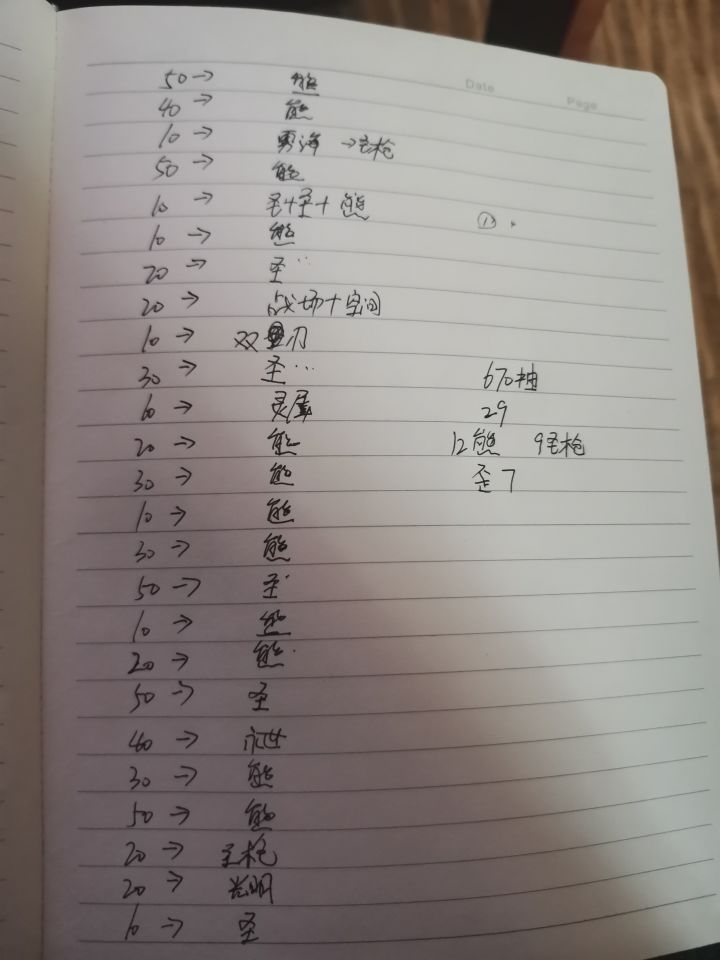 Date Page
50→ 熊
40→ 熊
10→ 雾海 →圣枪
50→ 熊
10→ 圣+圣+熊 ①
10→ 熊
20→ 圣…
20→ 战场+空间
10→ 双刃
30→ 圣… 670抽
60→ 灵 29
20→ 熊 12熊 9圣枪
30→ 熊 歪7
10→ 熊
30→ 熊
50→ 圣
10→ 熊
20→ 熊
50→ 圣
40→
30→ 熊
50→ 熊
20→ 圣枪
20→ 光明
10→ 圣